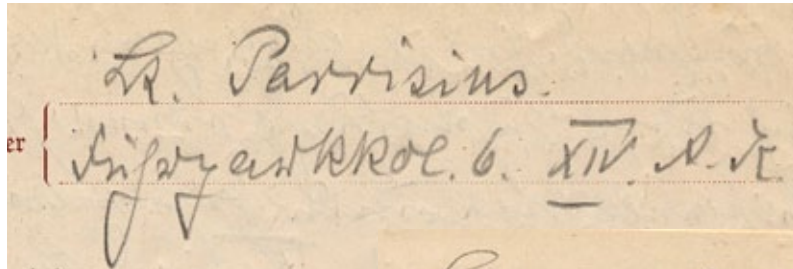 Lt. Parrisius.
er Fuhrparkkol. 6. XIV. A. K.